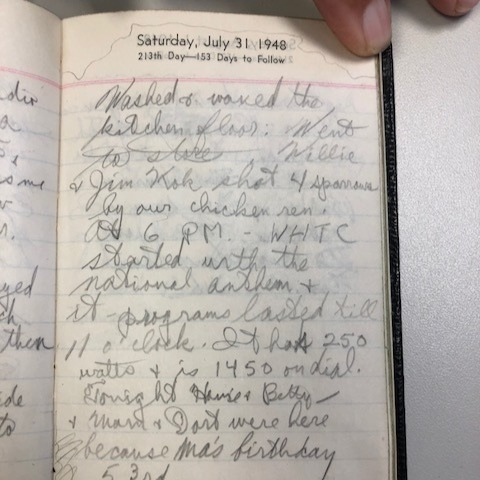 Saturday, July 31 1948
213th Day—153 Days to Follow
Washed & waxed the
kitchen floor. Went
to store. Willie
& Jim Kok shot 4 sparrows
by our chicken ren.
At 6 P.M. - WHTC
started with the
national anthem &
it - programs lasted till
11 o'clock. It has 250
watts & is 1450 on dial.
Tonight Howie & Betty -
& Mom & Dort were here
because Ma's birthday
53rd